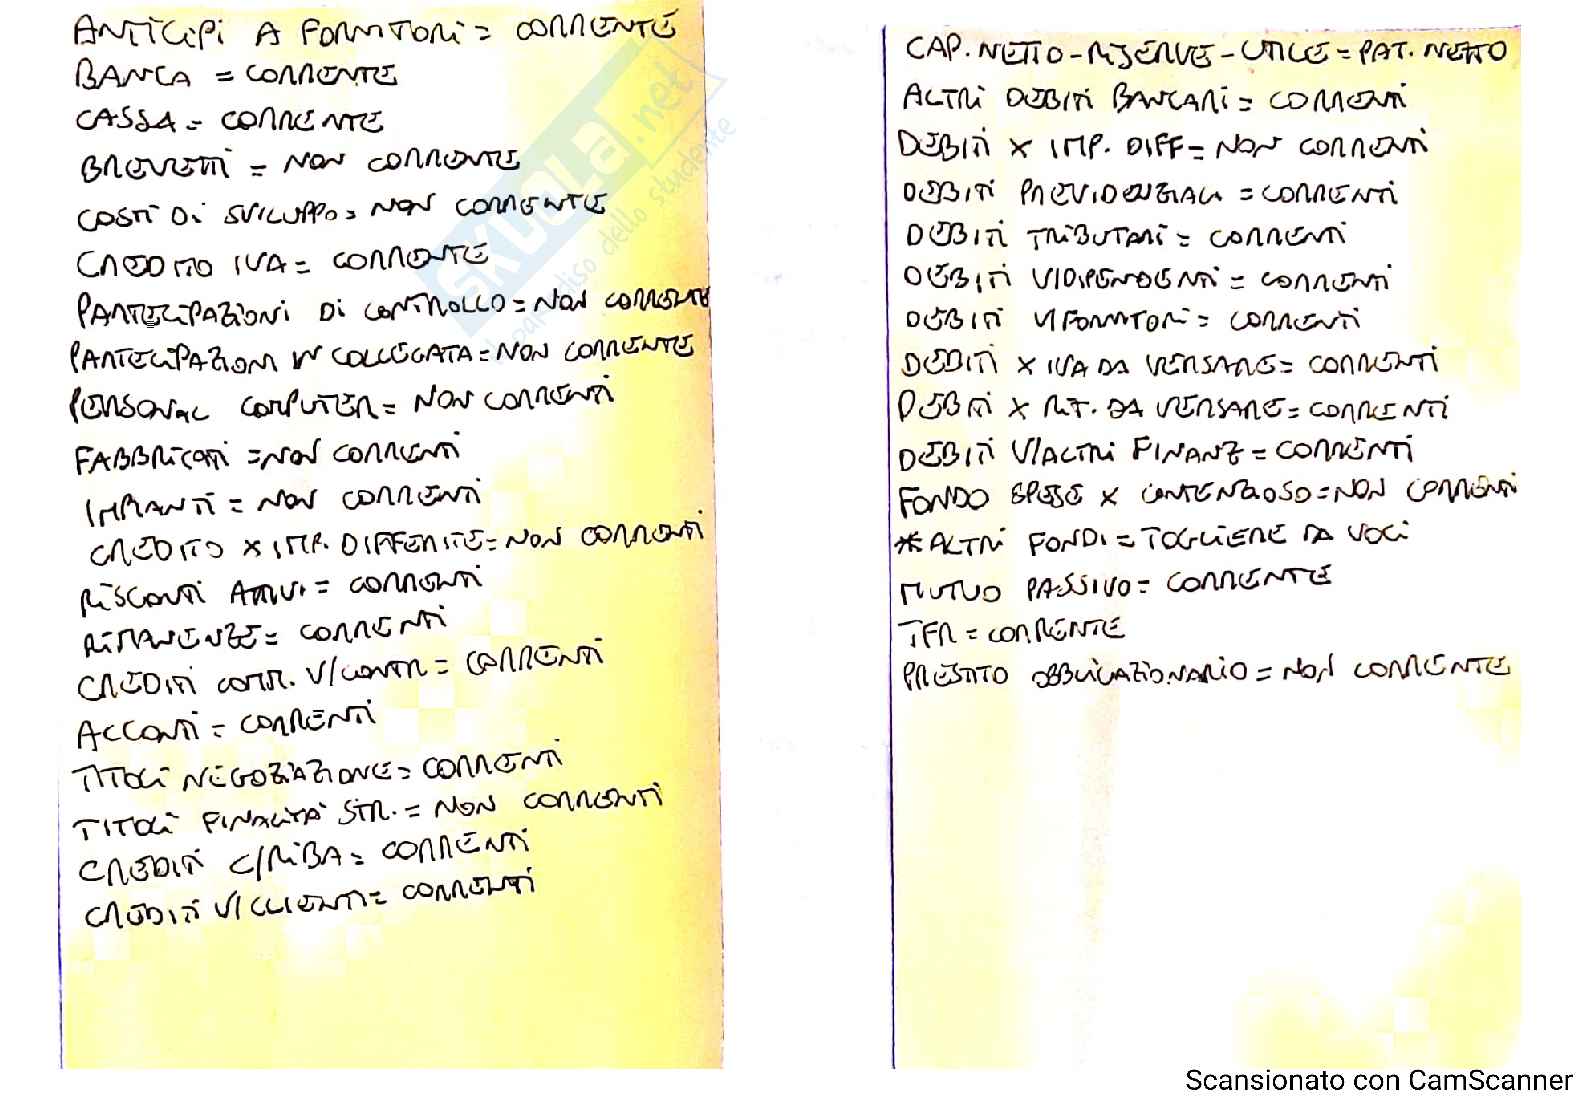 ANTICIPI A FORNITORI = CORRENTE
BANCA = CORRENTE
CASSA = CORRENTE
BREVETTI = NON CORRENTE
COSTI DI SVILUPPO = NON CORRENTE
CREDITO IVA = CORRENTE
PARTECIPAZIONI DI CONTROLLO = NON CORRENTE
PARTECIPAZIONI IN COLLEGATA = NON CORRENTE
PERSONAL COMPUTER = NON CORRENTI
FABBRICATI = NON CORRENTI
IMPIANTI = NON CORRENTI
CREDITO X IMP. DIFFERITE = NON CORRENTI
RISCONTI ATTIVI = CORRENTI
RIMANENZE = CORRENTI
CREDITI COMM. V/CONTR = CORRENTI
ACCONTI = CORRENTI
TITOLI NEGOZIAZIONE = CORRENTI
TITOLI FINALITÀ STR. = NON CORRENTI
CREDITI C/RIBA = CORRENTI
CREDITI V/CLIENTI = CORRENTI
SKUOLA.net
paradiso dello studente
CAP. NETTO - RISERVE - UTILE = PAT. NETTO
ALTRI DEBITI BANCARI = CORRENTI
DEBITI X IMP. DIFF = NON CORRENTI
DEBITI PREVIDENZIALI = CORRENTI
DEBITI TRIBUTARI = CORRENTI
DEBITI V/DIPENDENTI = CORRENTI
DEBITI V/FORNITORI = CORRENTI
DEBITI X IVA DA VERSARE = CORRENTI
DEBITI X RIT. DA VERSARE = CORRENTI
DEBITI V/ALTRI FINANZ = CORRENTI
FONDO SPESE X CONTENZIOSO = NON CORRENTI
* ALTRI FONDI = TOGLIERE DA VOCI
MUTUO PASSIVO = CORRENTE
TFR = CORRENTE
PRESTITO OBBLIGAZIONARIO = NON CORRENTE
Scansionato con CamScanner